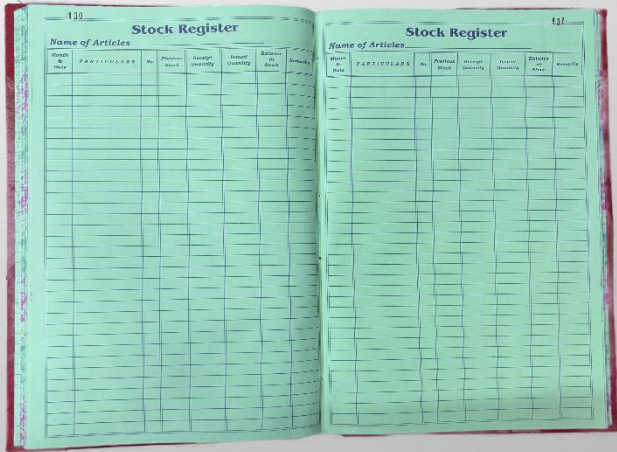 130
Stock Register
Name of Articles
Month & Date PARTICULARS No. Previous Stock Receipt Quantity Issued Quantity Balance in Stock Remarks
131
Stock Register
Name of Articles
Month & Date PARTICULARS No. Previous Stock Receipt Quantity Issued Quantity Balance in Stock Remarks